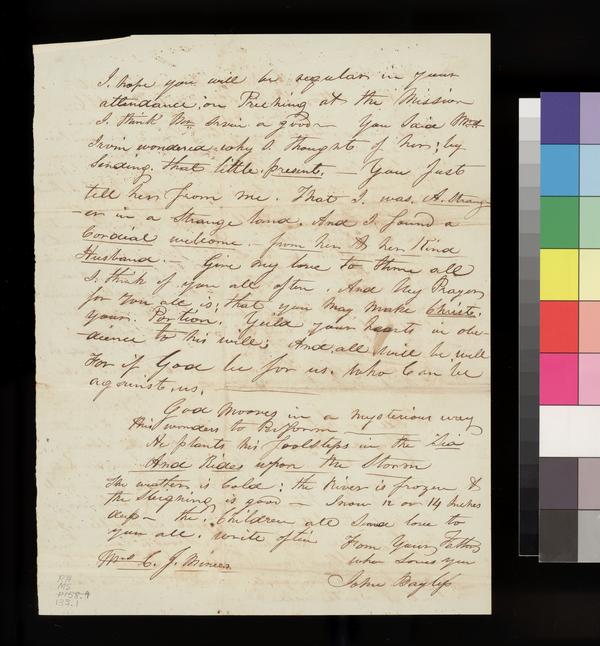 I hope you will be regular in your
attendance on Preching at the Mission
I think Mr. Irvin a good — You said Mrs
Irvin wondered why I thought of her; by
Sending that little present. — You Just
tell her from me. That I was A Strang-
er in a Strange land. And I found a
Cordial welcome — from her & her Kind
Husband. — Give my love to them all
I think of you all often. And My Prayers
for You all is; that you May Make Christ
your Portion. Yeild your hearts in obe-
dience to his will; And all will be well
For if God be for us. who Can be
against us.
God Mooves in a mysterious way
His wonders to Perform
He plants his footsteps in the Sea
And Rides upon the Storm
The wether is Cold: the River is frozen &
the Sleighing is good — Snow 12 or 14 Inches
deep — the Children all Send love to
you all. write often From Your Father
who Loves you
Mrs C. J. Miner
John Bayless